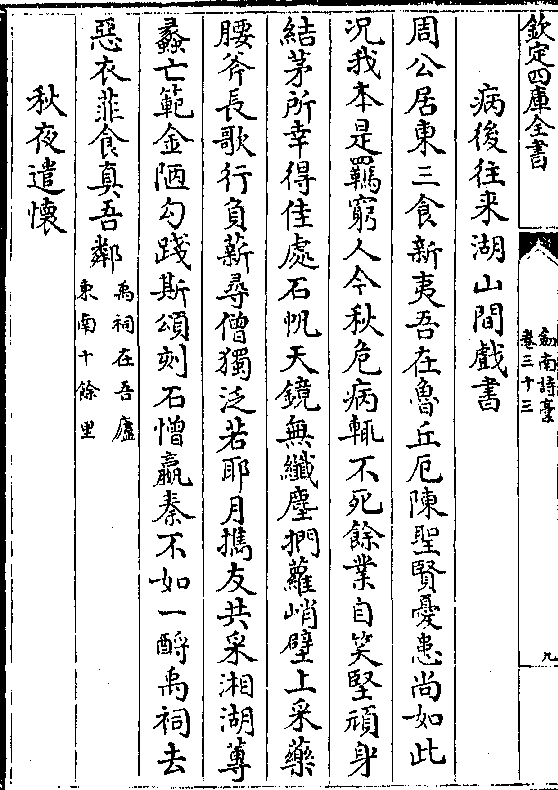 欽定四庫全書
劍南詩稾
卷三十三
九
病後往来湖山間戲書
周公居東三食新夷吾在魯丘厄陳聖賢憂患尚如此
况我本是羈窮人今秋危病輒不死餘業自笑堅頑身
結茅所幸得佳處石帆天鏡無纎塵捫蘿峭壁上采藥
腰斧長歌行負薪尋僧獨泛若耶月擕友共采湘湖蓴
蠡亡範金陋勾踐斯頌刻石憎嬴秦不如一酹禹祠去
惡衣菲食真吾鄰禹祠在吾廬
東南十餘里
秋夜遣懷